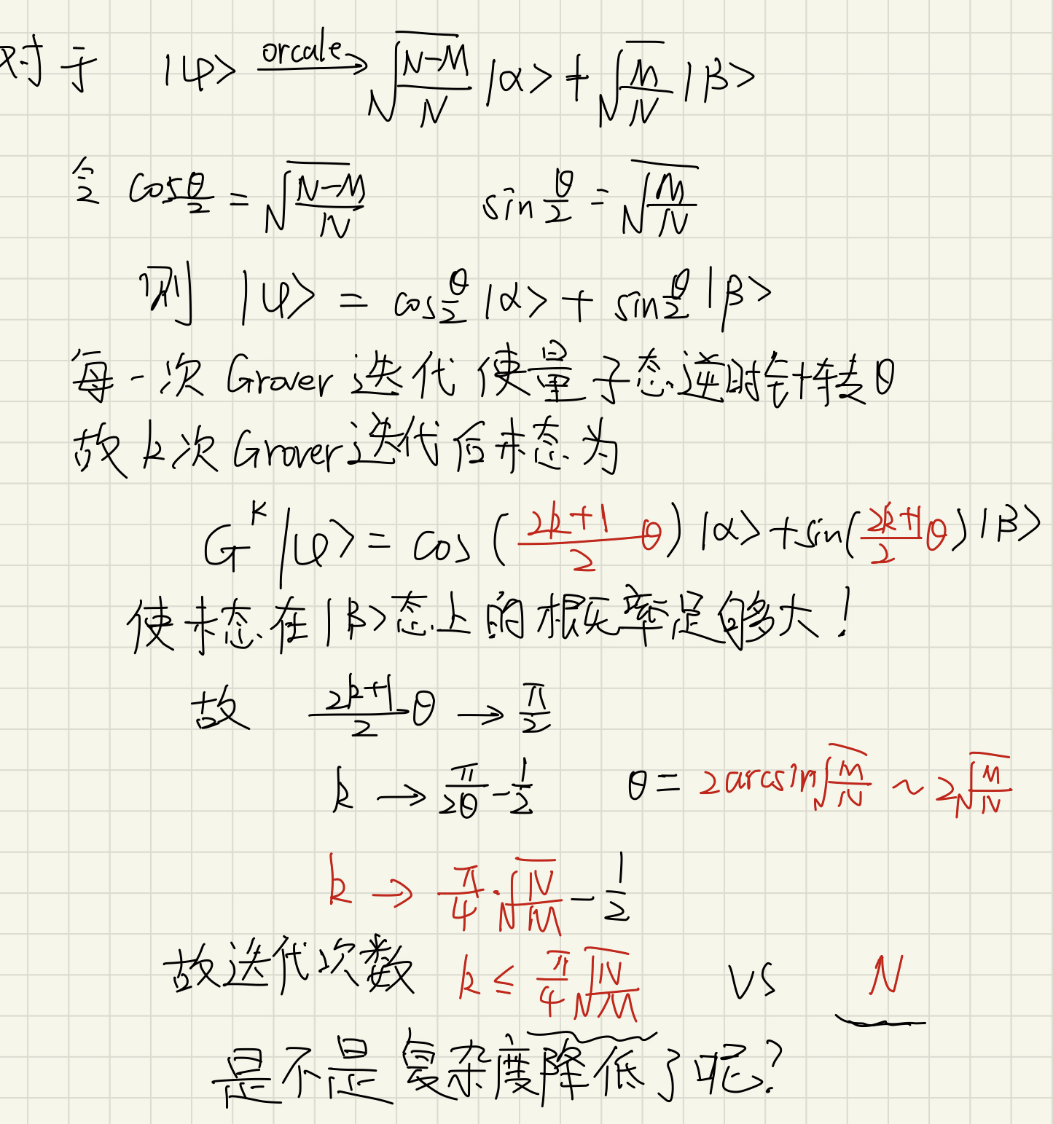 对于 |φ> orcale→ √((N-M)/N) |α> + √(M/N) |β>
令 cos θ/2 = √((N-M)/N) sin θ/2 = √(M/N)
则 |φ> = cos θ/2 |α> + sin θ/2 |β>
每一次 Grover 迭代 使量子态逆时针转 θ
故 k次 Grover迭代后末态为
G^k |φ> = cos ( (2k+1)/2 θ) |α> + sin( (2k+1)/2 θ) |β>
使末态在 |β> 态上的概率足够大!
故 (2k+1)/2 θ → π/2
k → π/2θ - 1/2 θ = 2arcsin√(M/N) ~ 2√(M/N)
k → π/4 · √(N/M) - 1/2
故迭代次数 k ≤ π/4 √(N/M) VS N
是不是复杂度降低了呢?